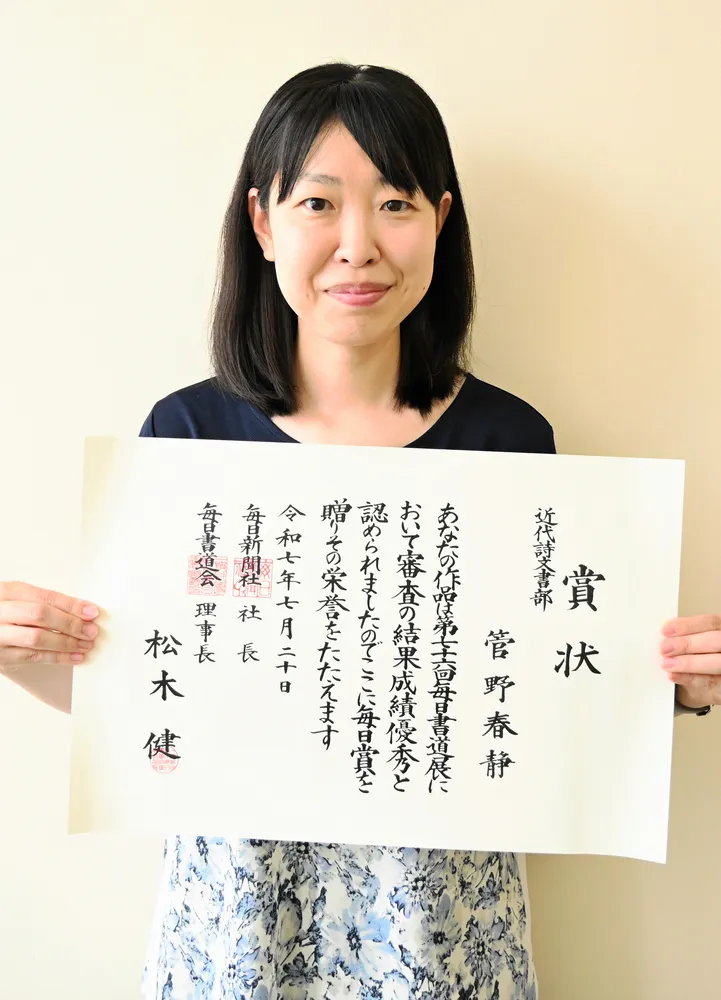 賞状
近代詩文書部
菅野春静
あなたの作品は第七十六回毎日書道展に
おいて審査の結果成績優秀と
認められましたのでここに毎日賞を
贈りその栄誉をたたえます
令和七年七月二十日
毎日新聞社 社長
毎日書道会 理事長
松木健